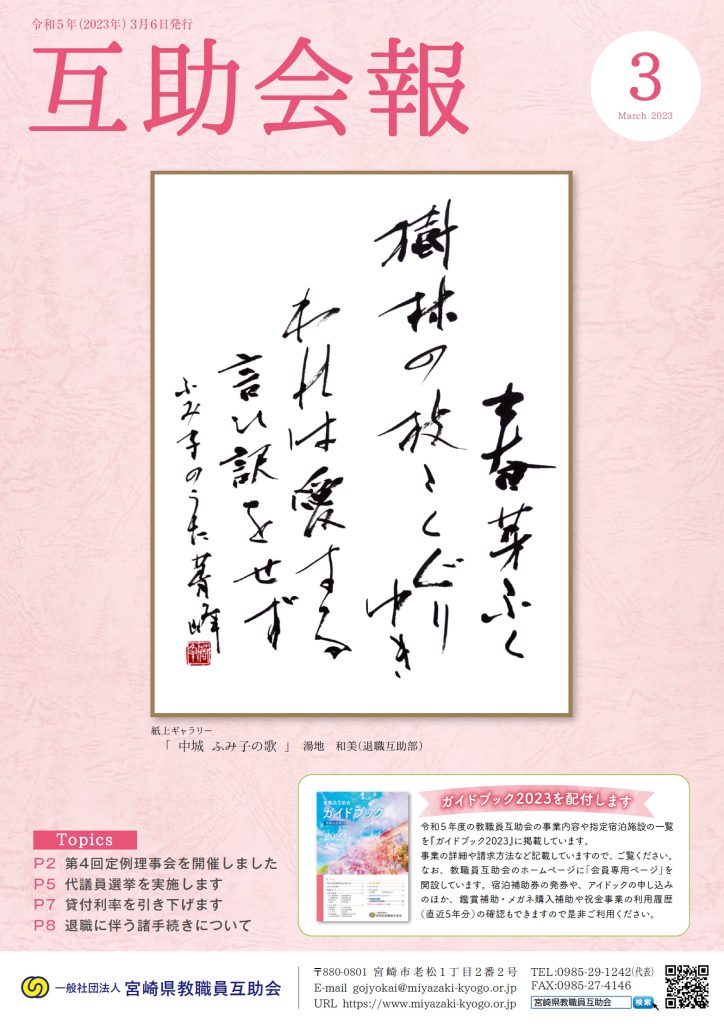 令和5年(2023年) 3月6日発行
互助会報
3
March 2023
春芽ふく
樹林の枝々くぐり
ゆき
われは愛する
言い訳をせず
ふみ子のうた 菁峰
紙上ギャラリー
「 中城 ふみ子の歌 」 湯地 和美(退職互助部)
教職員互助会
ガイドブック
2023
ガイドブック2023を配付します
令和5年度の教職員互助会の事業内容や指定宿泊施設の一覧
を『ガイドブック2023』に掲載しています。
事業の詳細や請求方法など記載していますので、ご覧ください。
なお、教職員互助会のホームページに「会員専用ページ」を
開設しています。宿泊補助券の発券や、アイドックの申し込み
のほか、鑑賞補助・メガネ購入補助や祝金事業の利用履歴
(直近5年分)の確認もできますので是非ご利用ください。
Topics
P2 第4回定例理事会を開催しました
P5 代議員選挙を実施します
P7 貸付利率を引き下げます
P8 退職に伴う諸手続きについて
一般社団法人 宮崎県教職員互助会
〒880-0801 宮崎市老松1丁目2番2号
E-mail gojyokai@miyazaki-kyogo.or.jp
URL https://www.miyazaki-kyogo.or.jp
TEL:0985-29-1242(代表)
FAX:0985-27-4146
宮崎県教職員互助会 検索